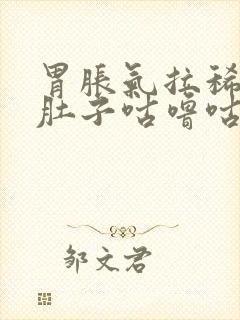 胃脹氣拉稀
肚子咕嚕咕
邹文君